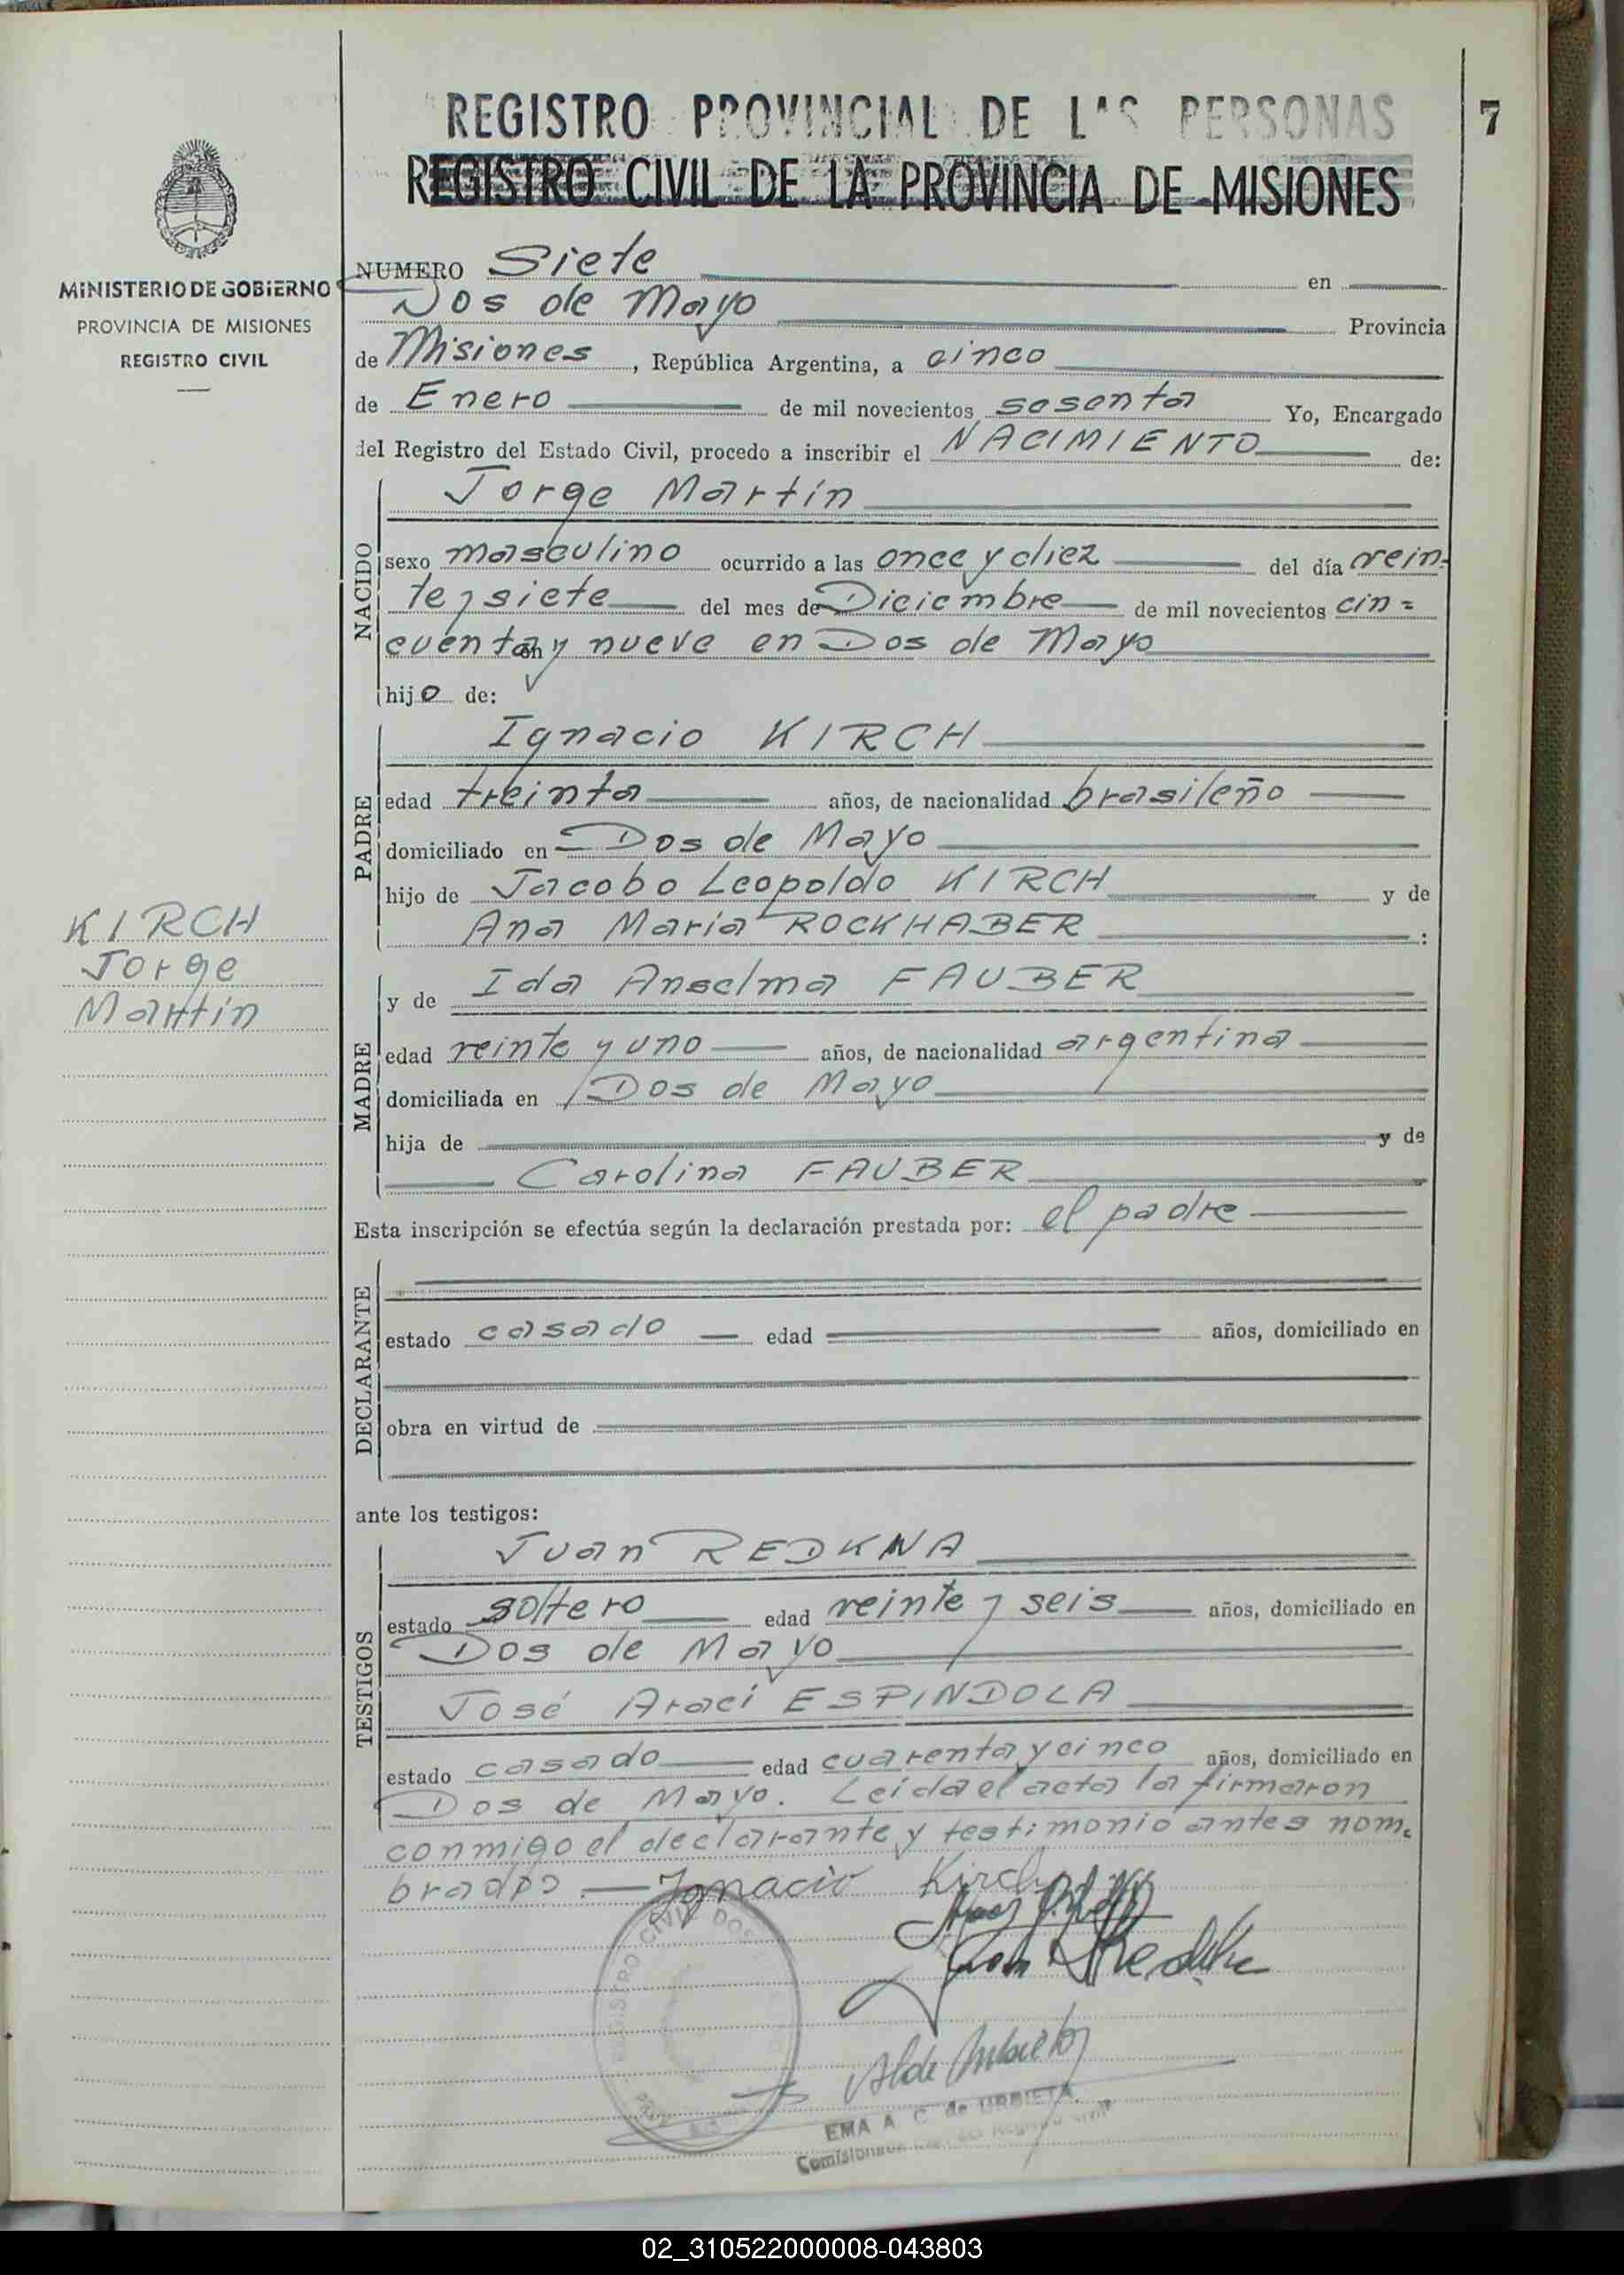 REGISTRO PROVINCIAL DE LAS PERSONAS
7
REGISTRO CIVIL DE LA PROVINCIA DE MISIONES
MINISTERIO DE GOBIERNO
PROVINCIA DE MISIONES
REGISTRO CIVIL
NUMERO Siete en
Dos de Mayo Provincia
de Misiones, República Argentina, a cinco
de Enero de mil novecientos sesenta Yo, Encargado
del Registro del Estado Civil, procedo a inscribir el NACIMIENTO de:
Jorge Martín
NACIDO
sexo masculino ocurrido a las once y diez del día vein-
te y siete del mes de Diciembre de mil novecientos cin=
cuenta y nueve en Dos de Mayo
en
hijo de:
Ignacio KIRCH
PADRE
edad treinta años, de nacionalidad brasileño
domiciliado en Dos de Mayo
hijo de Jacobo Leopoldo KIRCH y de
Ana María ROCKHABER :
KIRCH
Jorge
Martín
MADRE
y de Ida Anselma FAUBER
edad veinte y uno años, de nacionalidad argentina
domiciliada en Dos de Mayo
hija de y de
Carolina FAUBER
Esta inscripción se efectúa según la declaración prestada por: el padre
DECLARANTE
estado casado edad años, domiciliado en
obra en virtud de
ante los testigos:
Juan REDKNA
TESTIGOS
estado soltero edad veinte y seis años, domiciliado en
Dos de Mayo
José Araci ESPINDOLA
estado casado edad cuarenta y cinco años, domiciliado en
Dos de Mayo. Leída el acta la firmaron
conmigo el declarante y testimonio antes nom.
brados.— Ignacio Kirch
Juan
REGISTRO CIVIL DOS
EMA A. C. de URBIETA
Registro Civil
02_310522000008-043803